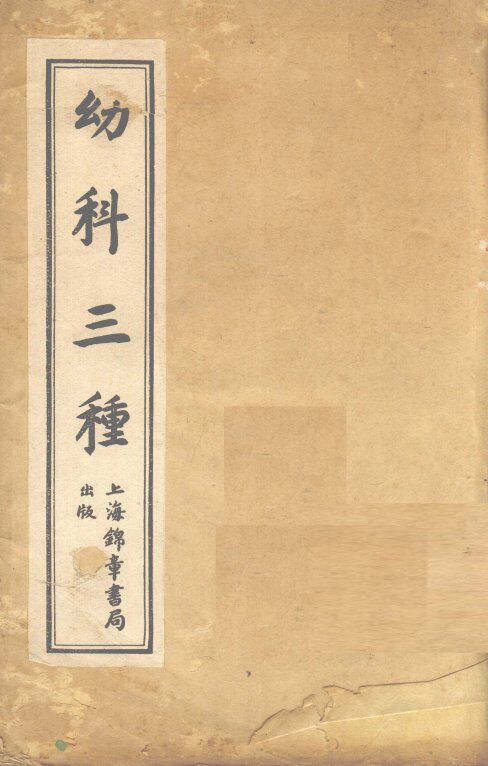 幼科三種
上海錦章書局
出版